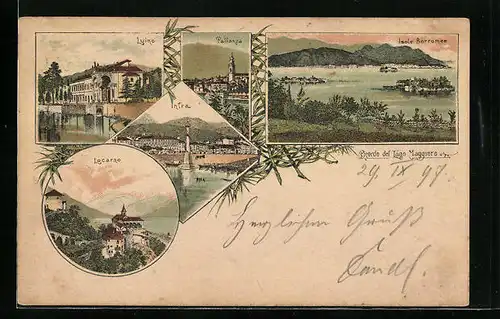 Luino
Pallanza
Isole Borromee
Intra
Locarno
Ricordo del Lago Maggiore
29 IX 97.
Herzlichen Gruß